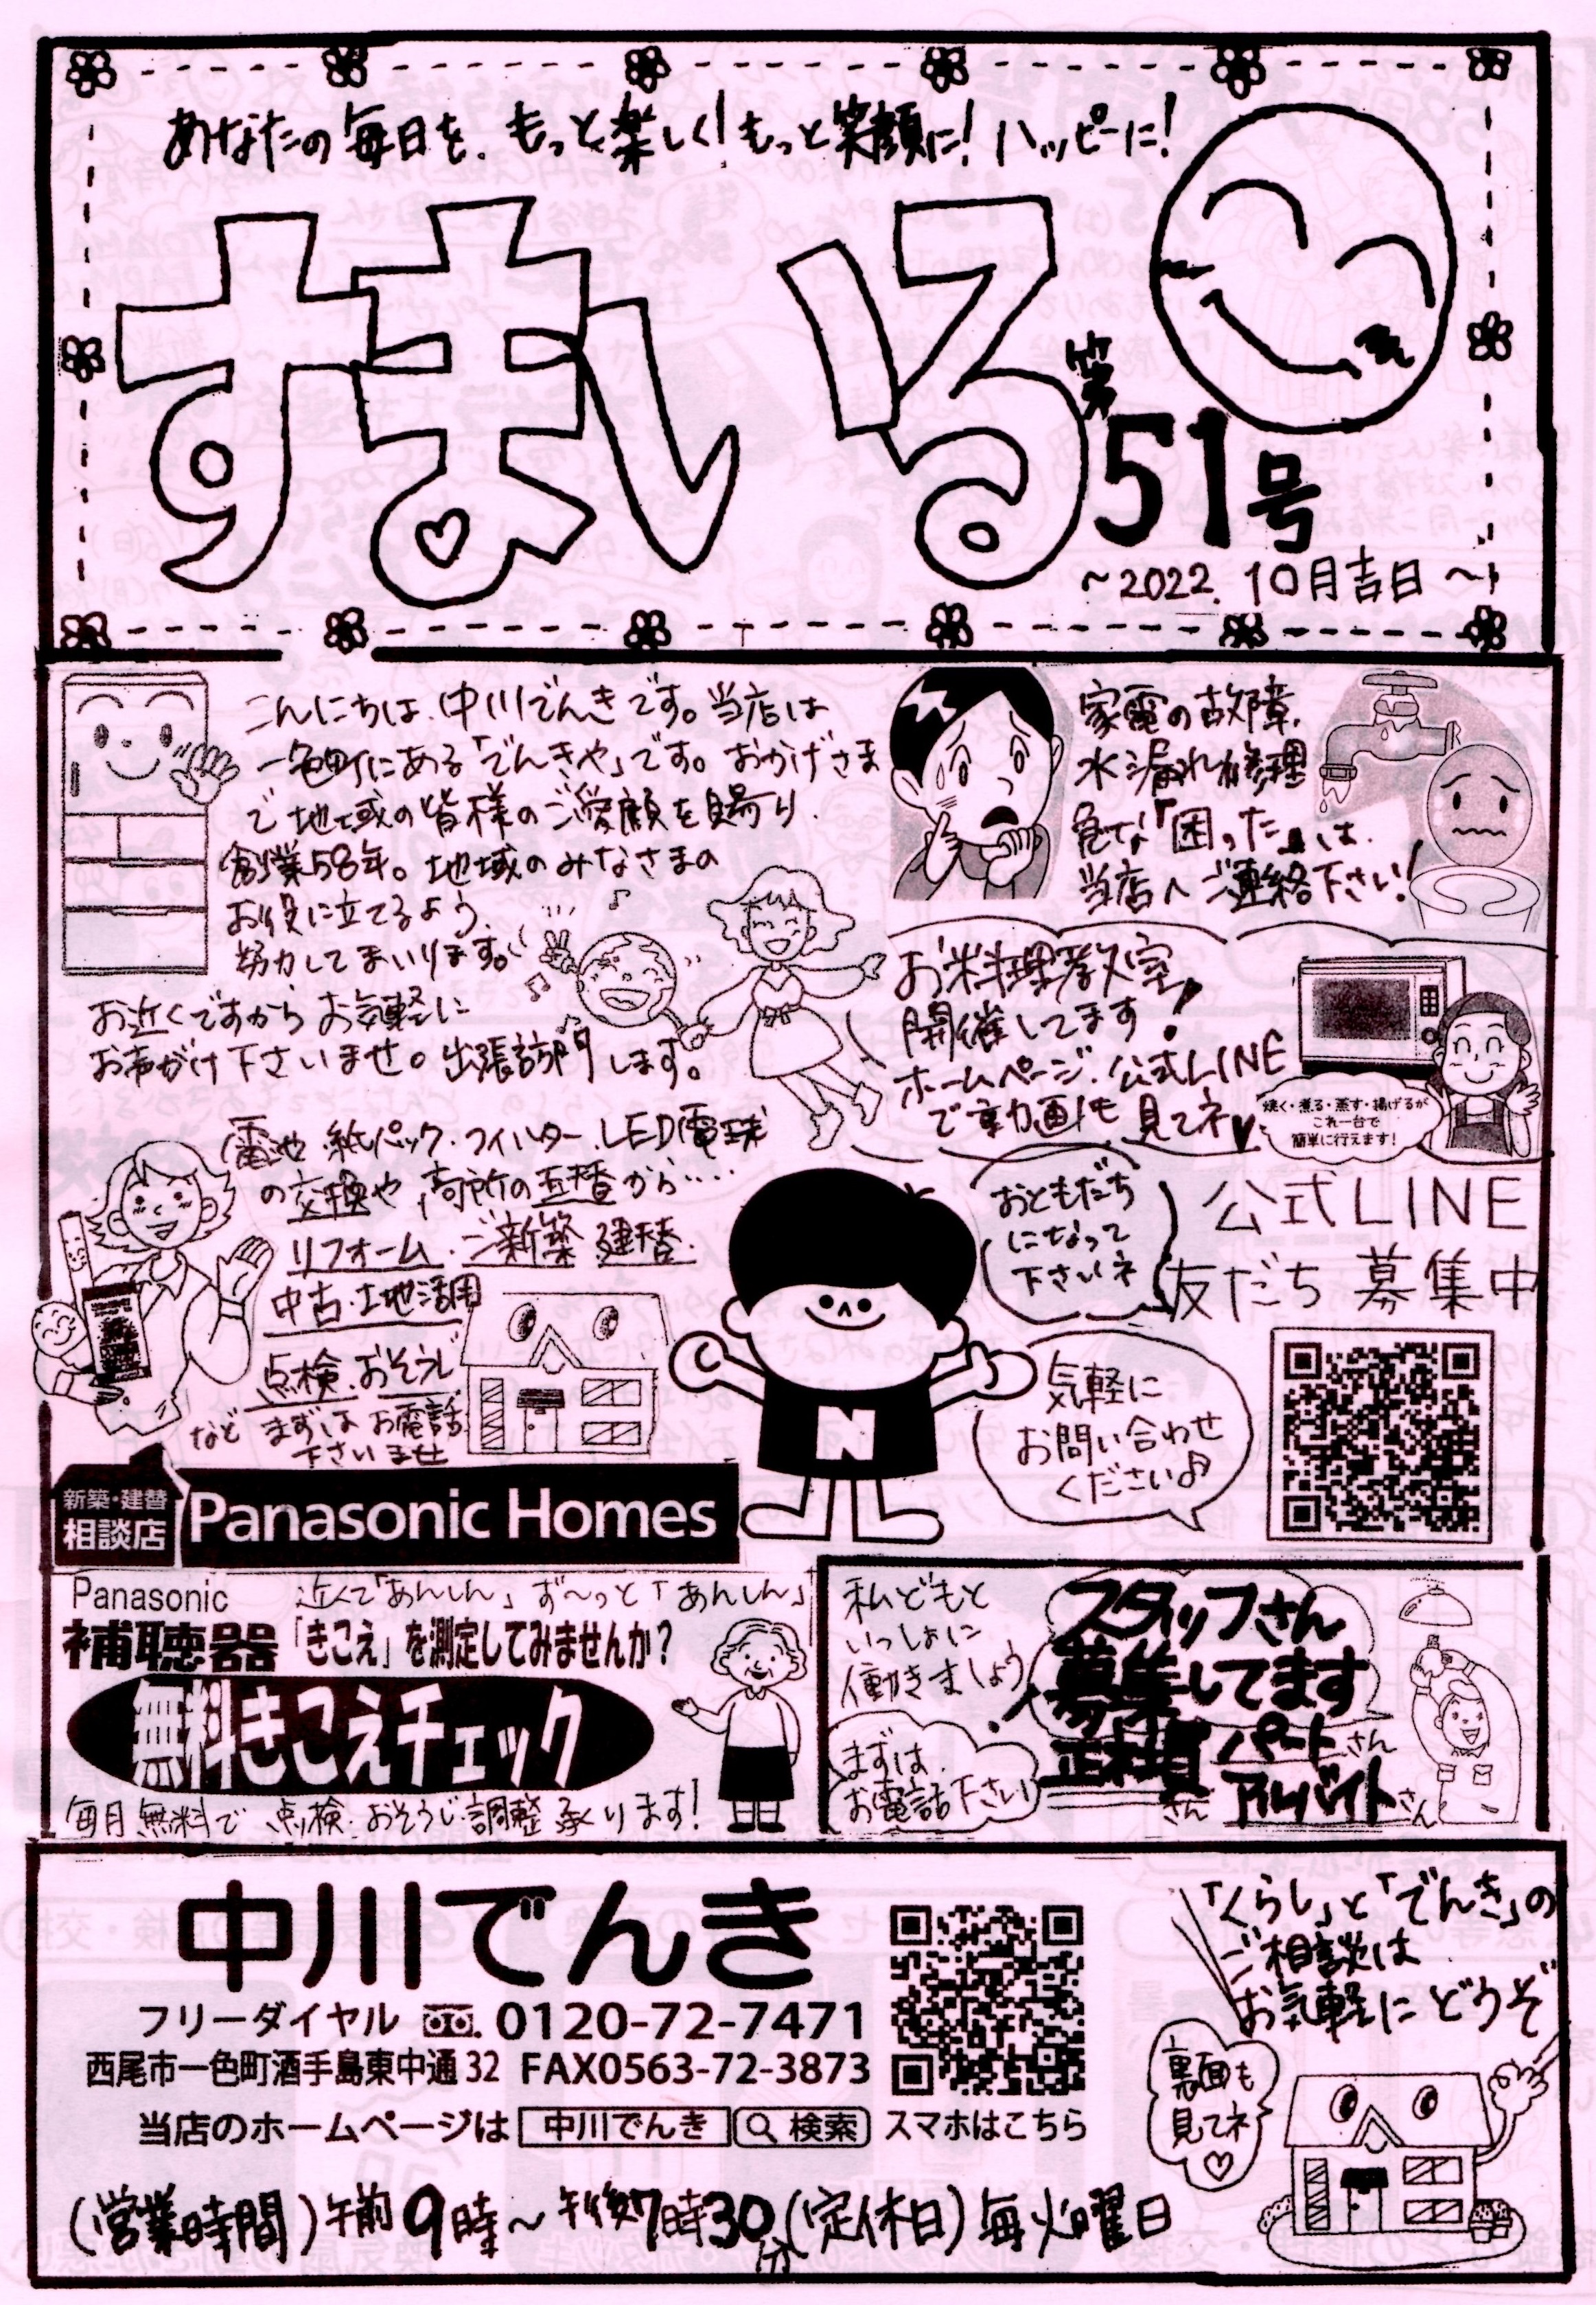 あなたの毎日を、もっと楽しく！もっと笑顔に！ハッピーに！
すまいる
第51号
～2022.10月吉日～
こんにちは、中川でんきです。当店は
一色町にある「でんきや」です。おかげさま
で地域の皆様のご愛顧を賜り、
創業58年。地域のみなさまの
お役に立てるよう、
努力してまいります。
お近くですからお気軽に
お声がけ下さいませ。出張訪問します。
家電の故障、
水漏れ修理
急な「困った」は、
当店へご連絡下さい！
お料理教室
開催してます！
ホームページ、公式LINE
で動画も見てネ♥
焼く・煮る・蒸す・揚げるが
これ一台で
簡単に行えます！
電池・紙パック・フィルター・LED電球
の交換や、高所の玉替から…
リフォーム・ご新築・建替・
中古・土地活用
点検・おそうじ
など まずはお電話
下さいませ
おともだち
になって
下さいネ
公式LINE
友だち募集中
N
気軽に
お問い合わせ
ください♪
新築・建替
相談店
Panasonic Homes
Panasonic 近くで「あんしん」ず～っと「あんしん」
補聴器「きこえ」を測定してみませんか？
無料きこえチェック
毎月無料で点検・おそうじ・調整承ります！
私どもと
いっしょに
働きましょう！
まずは、
お電話下さい！
スタッフさん
募集してます
正社員さん パートさん
アルバイトさん
中川でんき
フリーダイヤル 0120-72-7471
西尾市一色町酒手島東中通32 FAX0563-72-3873
当店のホームページは 中川でんき 検索 スマホはこちら
「くらし」と「でんき」の
ご相談は
お気軽にどうぞ
裏面も
見てネ
♡
（営業時間）午前9時～午後7時30分（定休日）毎火曜日